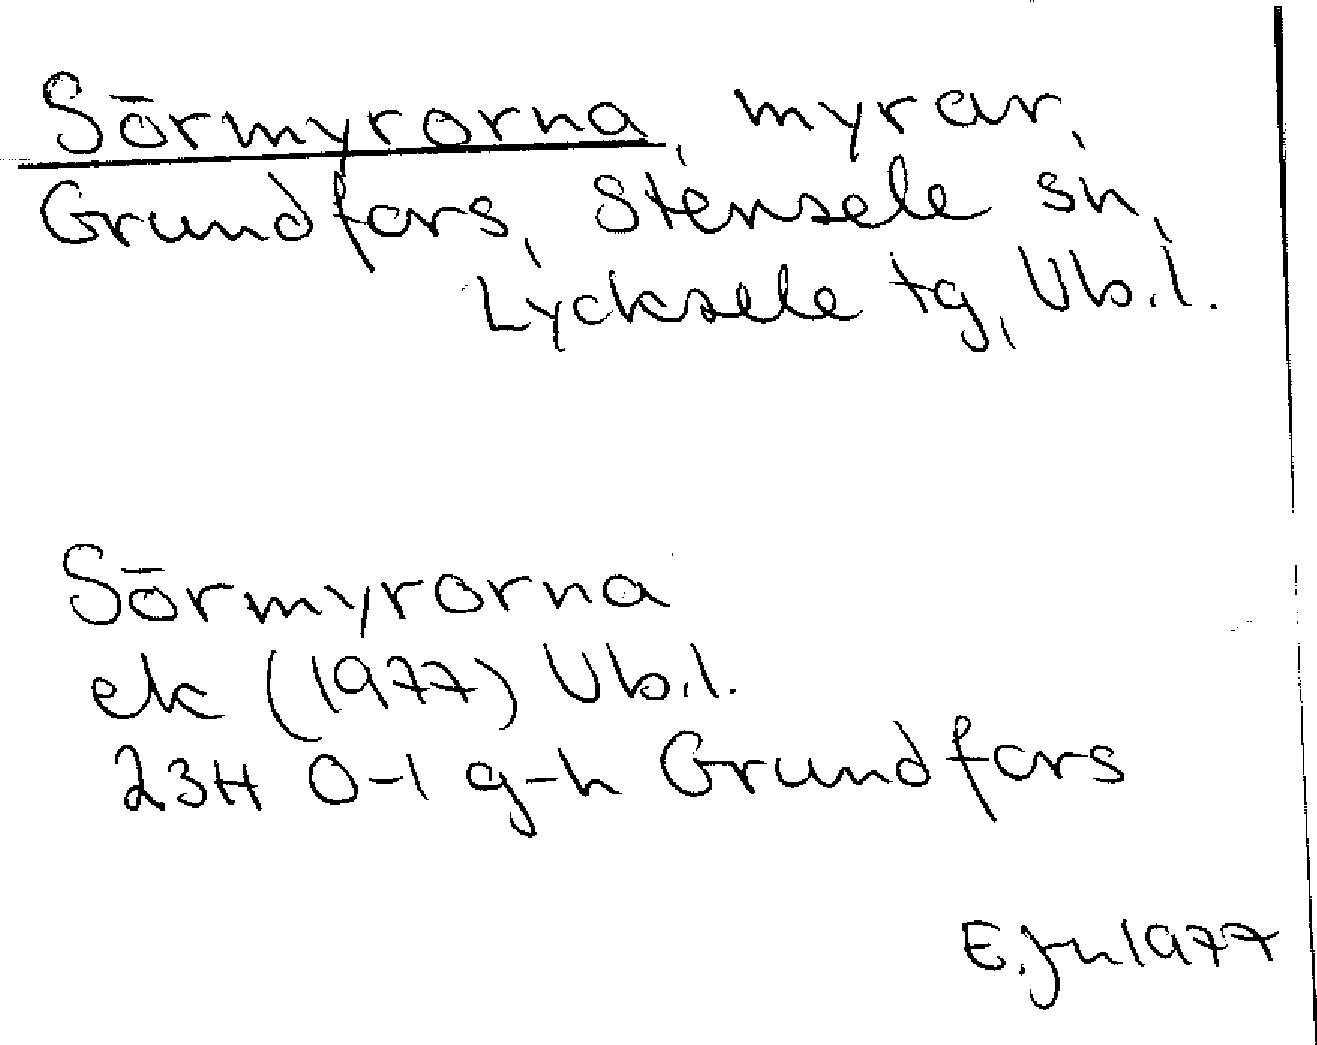 Sörmyrorna, myrar,
Grundfors, Stensele sn,
Lycksele tg, Vb.l.
Sörmyrorna
ek (1977) Vb.l.
23H 0-1 g-h Grundfors
E. Jn 1977